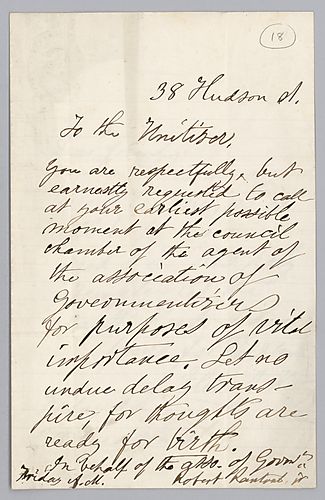 18
38 Hudson st.
To the Unitizer,
You are respectfully, but
earnestly requested to call
at your earliest possible
moment at the council
chamber of the agent of
the association of
Governmentizers
for purposes of vital
importance. Let no
undue delay trans-
pire, for thoughts are
ready for birth.
In behalf of the ass. of Governm
Friday A.M.
Robert Rantoul jr